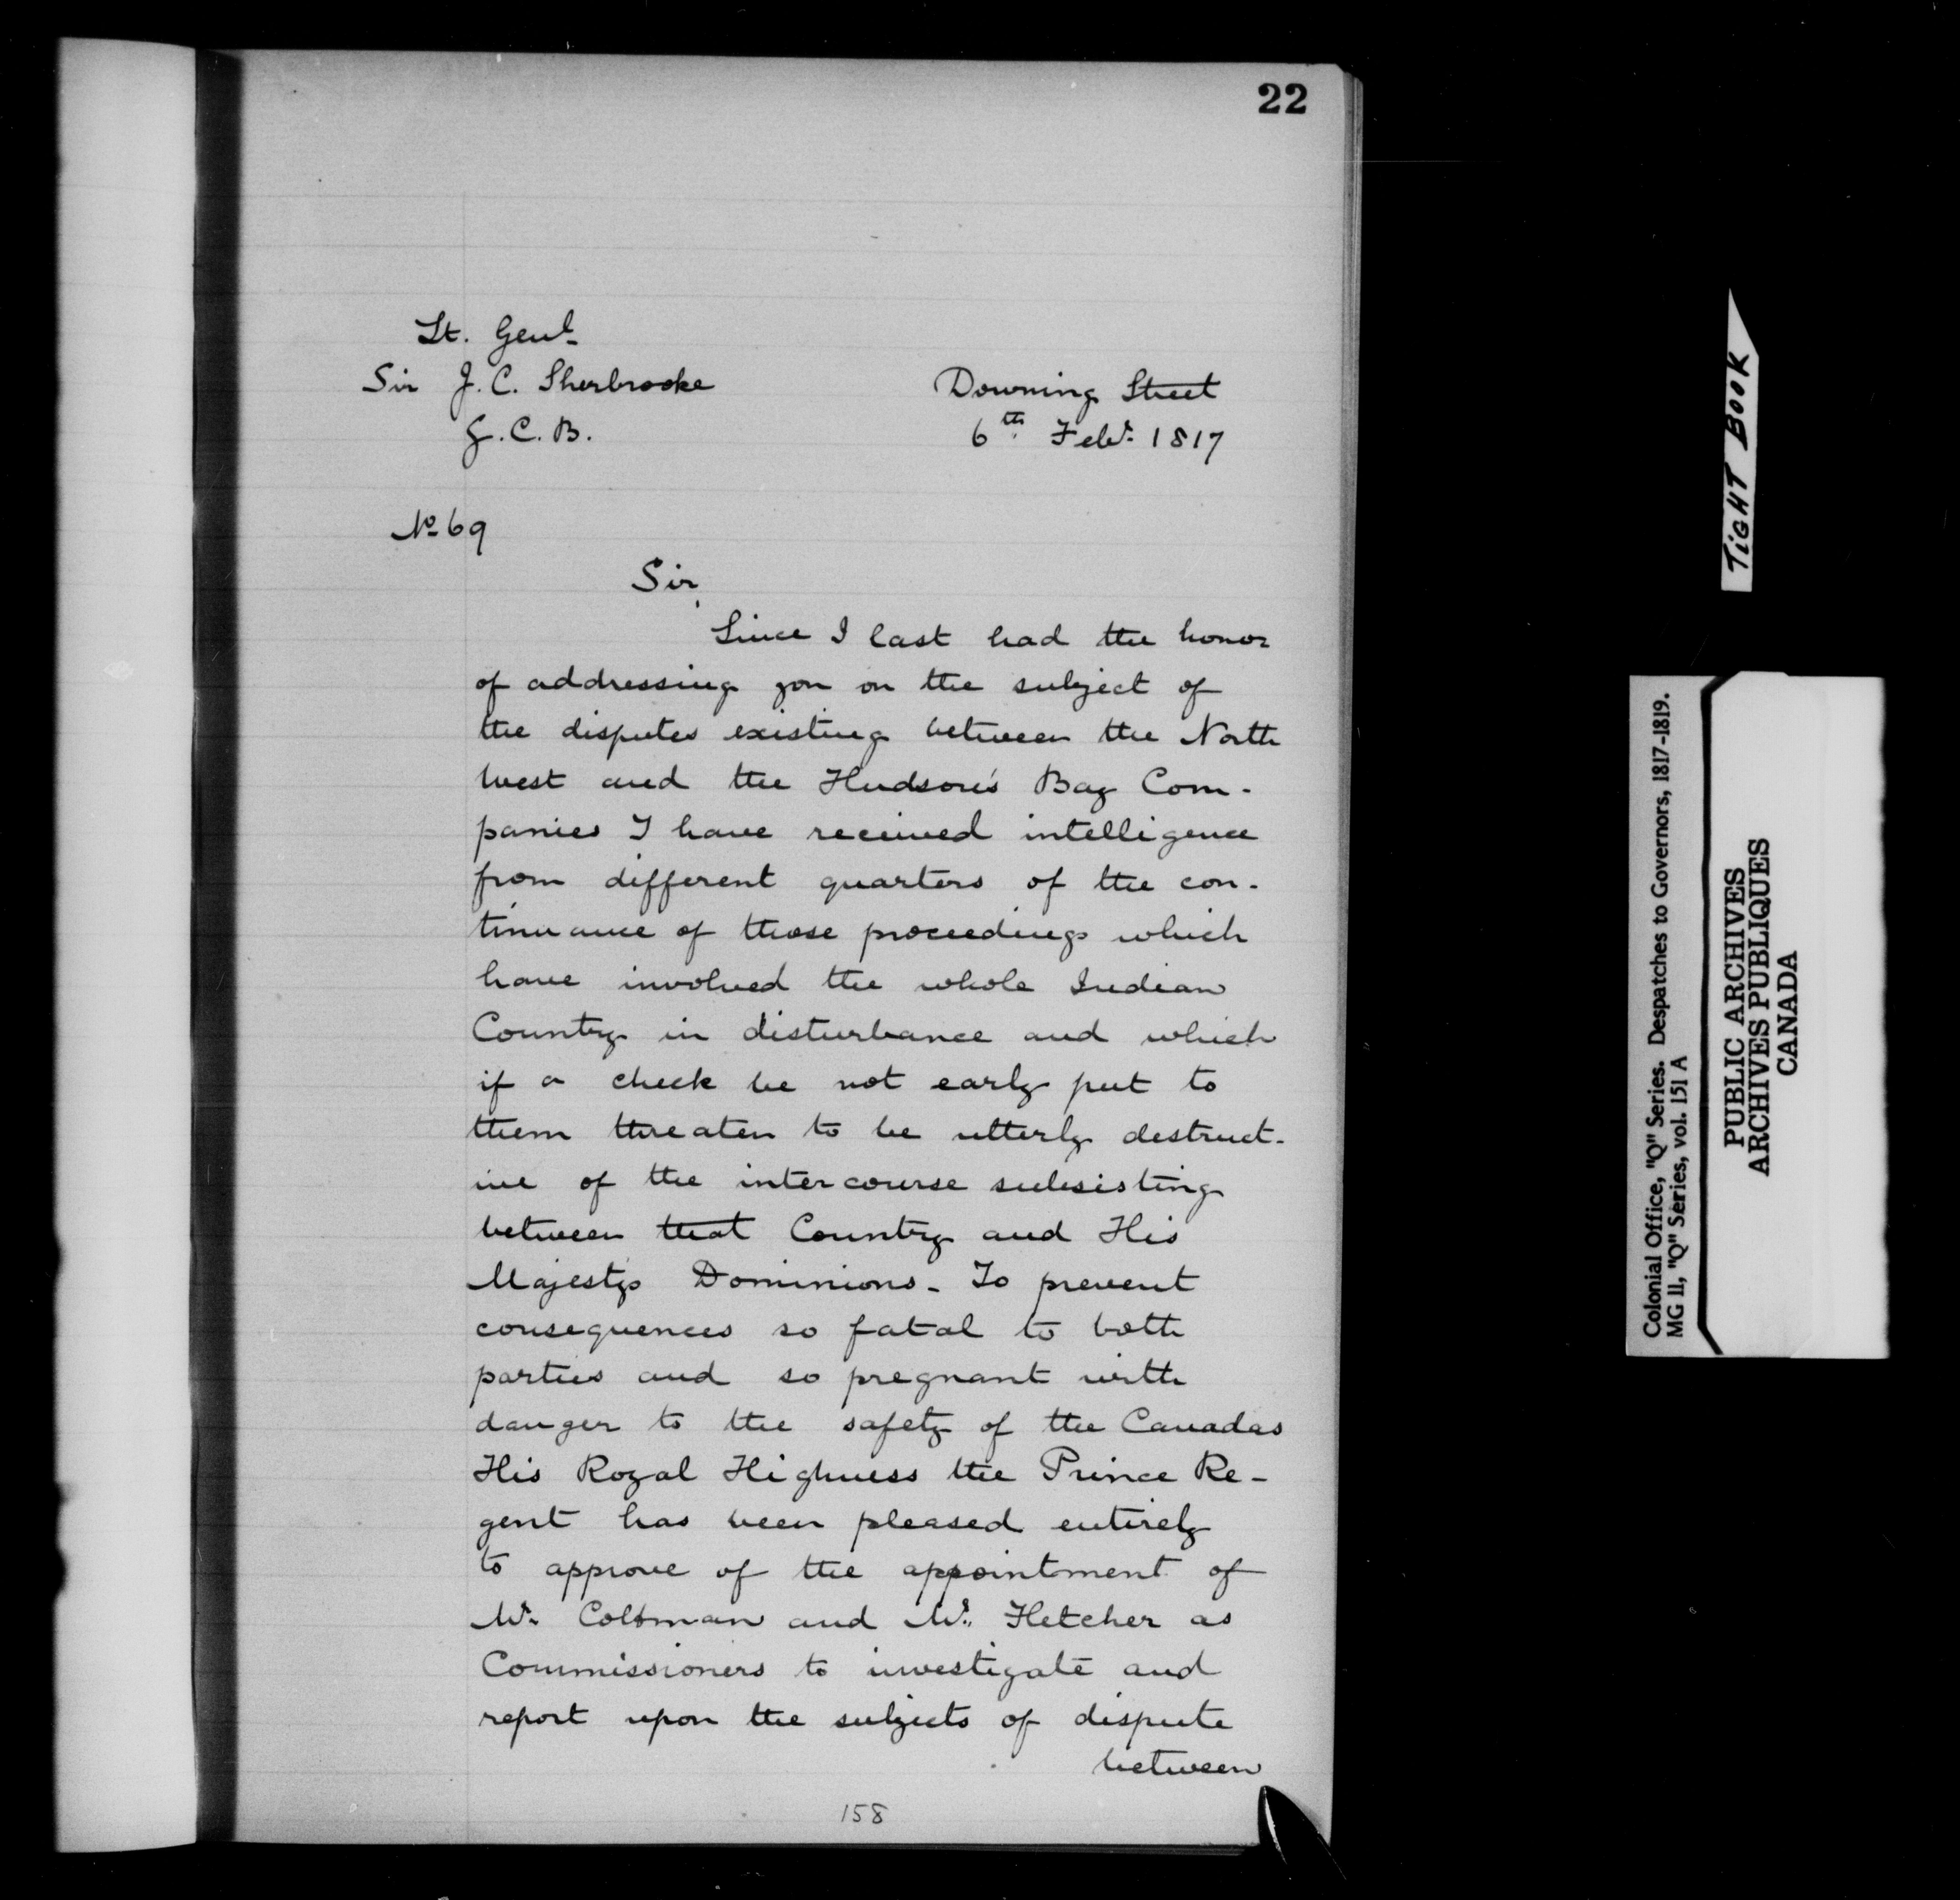 22
Lt. Genl
Sir J. C. Sherbrooke
G. C. B.
Downing Street
6th Feby. 1817
No 69
Sir,
Since I last had the honor
of addressing you on the subject of
the disputes existing between the North
West and the Hudson's Bay Com-
panies I have received intelligence
from different quarters of the con-
tinuance of those proceedings which
have involved the whole Indian
Country in disturbance and which
if a check be not early put to
them threaten to be utterly destruct-
ive of the intercourse subsisting
between that Country and His
Majestys Dominions - To prevent
consequences so fatal to both
parties and so pregnant with
danger to the safety of the Canadas
His Royal Highness the Prince Re-
gent has been pleased entirely
to approve of the appointment of
Mr. Coltman and Mr. Fletcher as
Commissioners to investigate and
report upon the subjects of dispute
between
158
TIGHT BOOK
Colonial Office, "Q" Series. Despatches to Governors, 1817-1819.
MG 11, "Q" Series, vol. 151 A
PUBLIC ARCHIVES
ARCHIVES PUBLIQUES
CANADA